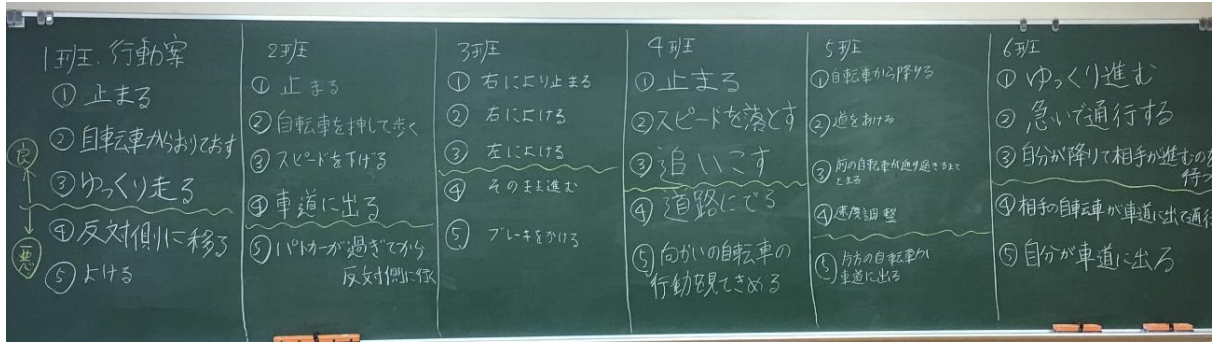 1班 行動案
① 止まる
② 自転車からおりておす
③ ゆっくり走る
④ 反対側に移る
⑤ よける
良
悪
2班
① 止まる
② 自転車を押して歩く
③ スピードを下げる
④ 車道に出る
⑤ パトカーが過ぎてから
反対側に行く
3班
① 右により止まる
② 右によける
③ 左によける
④ そのまま進む
⑤ ブレーキをかける
4班
① 止まる
② スピードを落とす
③ 追いこす
④ 道路にでる
⑤ 向かいの自転車の
行動を見てきめる
5班
① 自転車から降りる
② 道をあける
③ 前の自転車が通り過ぎるまで
とまる
④ 速度調整
⑤ 片方の自転車が
車道に出る
6班
① ゆっくり進む
② 急いで通行する
③ 自分が降りて相手が進むのを
待つ
④ 相手の自転車が車道に出て通行
⑤ 自分が車道に出る